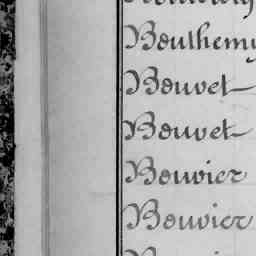 Bouthemy
Bouvet
Bouvet
Bouvier
Bouvier